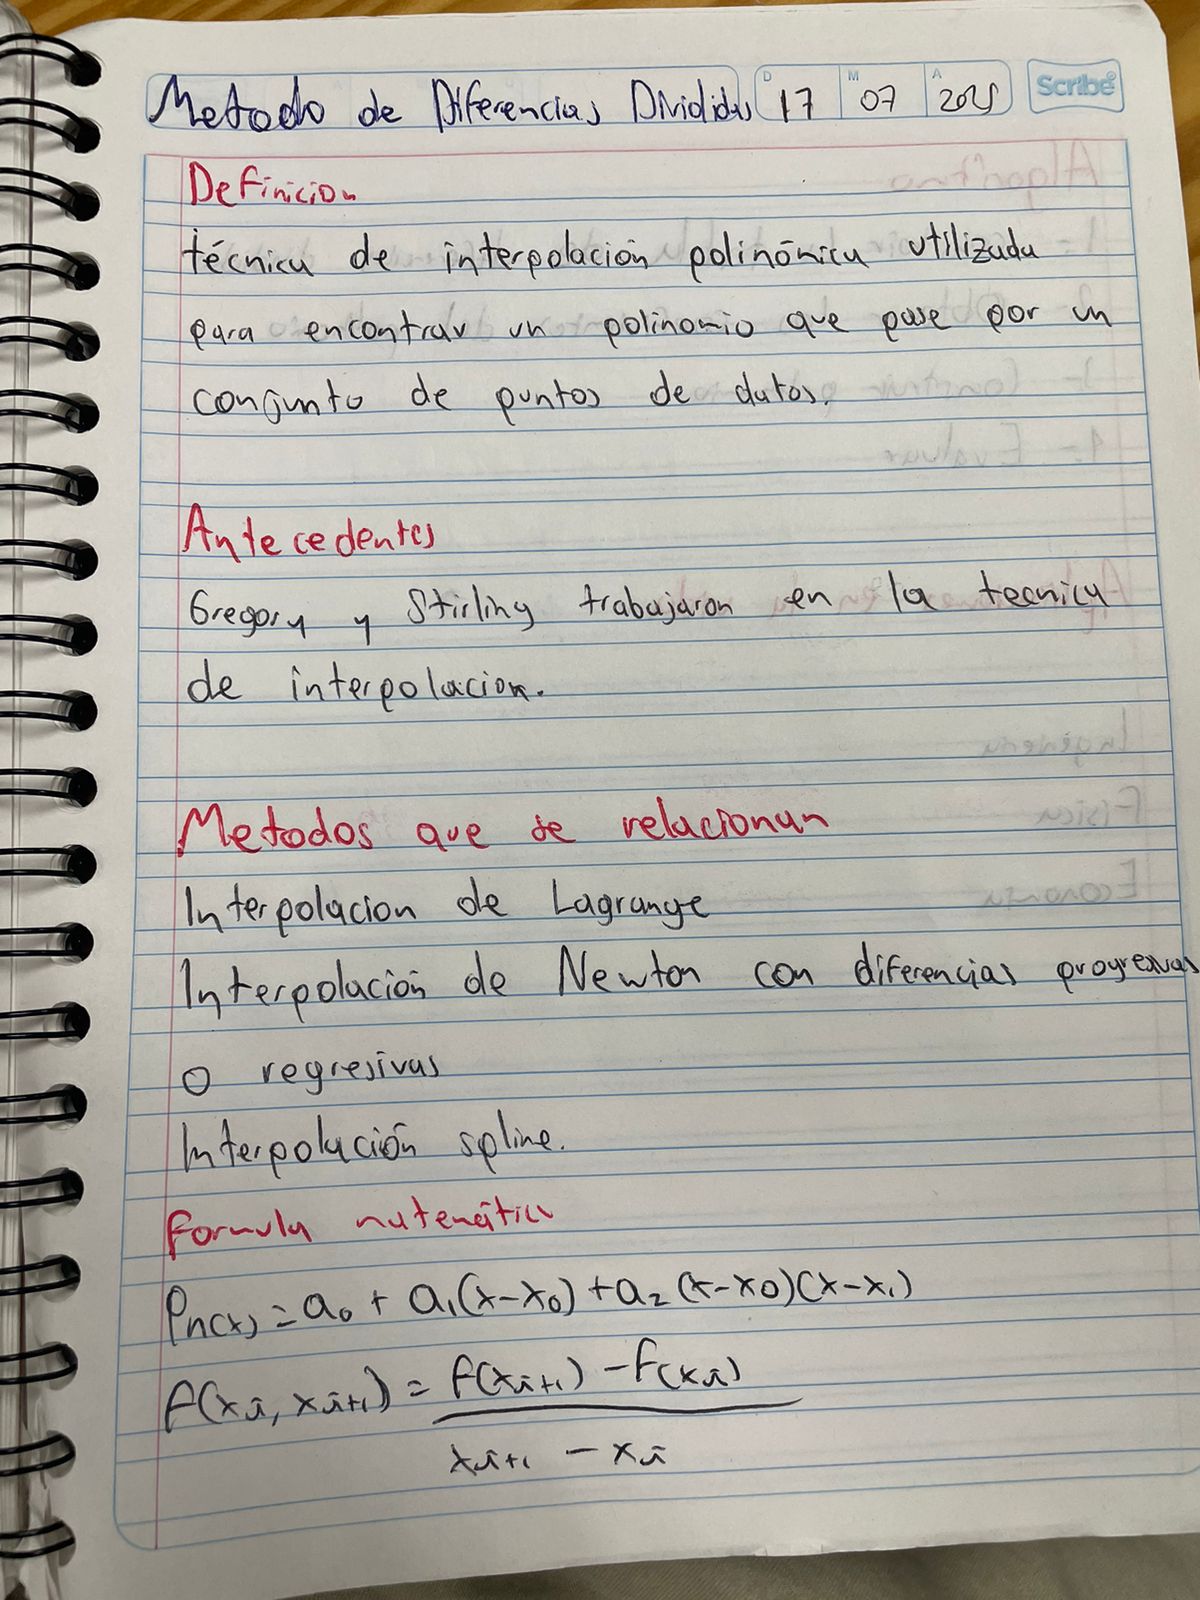 Metodo de Diferencias Divididas D 17 M 07 A 2025 Scribe
Definicion
técnica de interpolación polinónica utilizada
para encontrar un polinomio que pase por un
conjunto de puntos de datos.
Antecedentes
Gregory y Stirling trabajaron en la tecnica
de interpolacion.
Metodos que se relacionan
Interpolacion de Lagrange
Interpolación de Newton con diferencias progresivas
o regresivas
Interpolación spline.
Formula matemática
Pn(x) = a₀ + a₁(x-x₀) + a₂(x-x₀)(x-x₁)
f(xi, xi+1) = f(xi+1) - f(xi)
xi+1 - xi